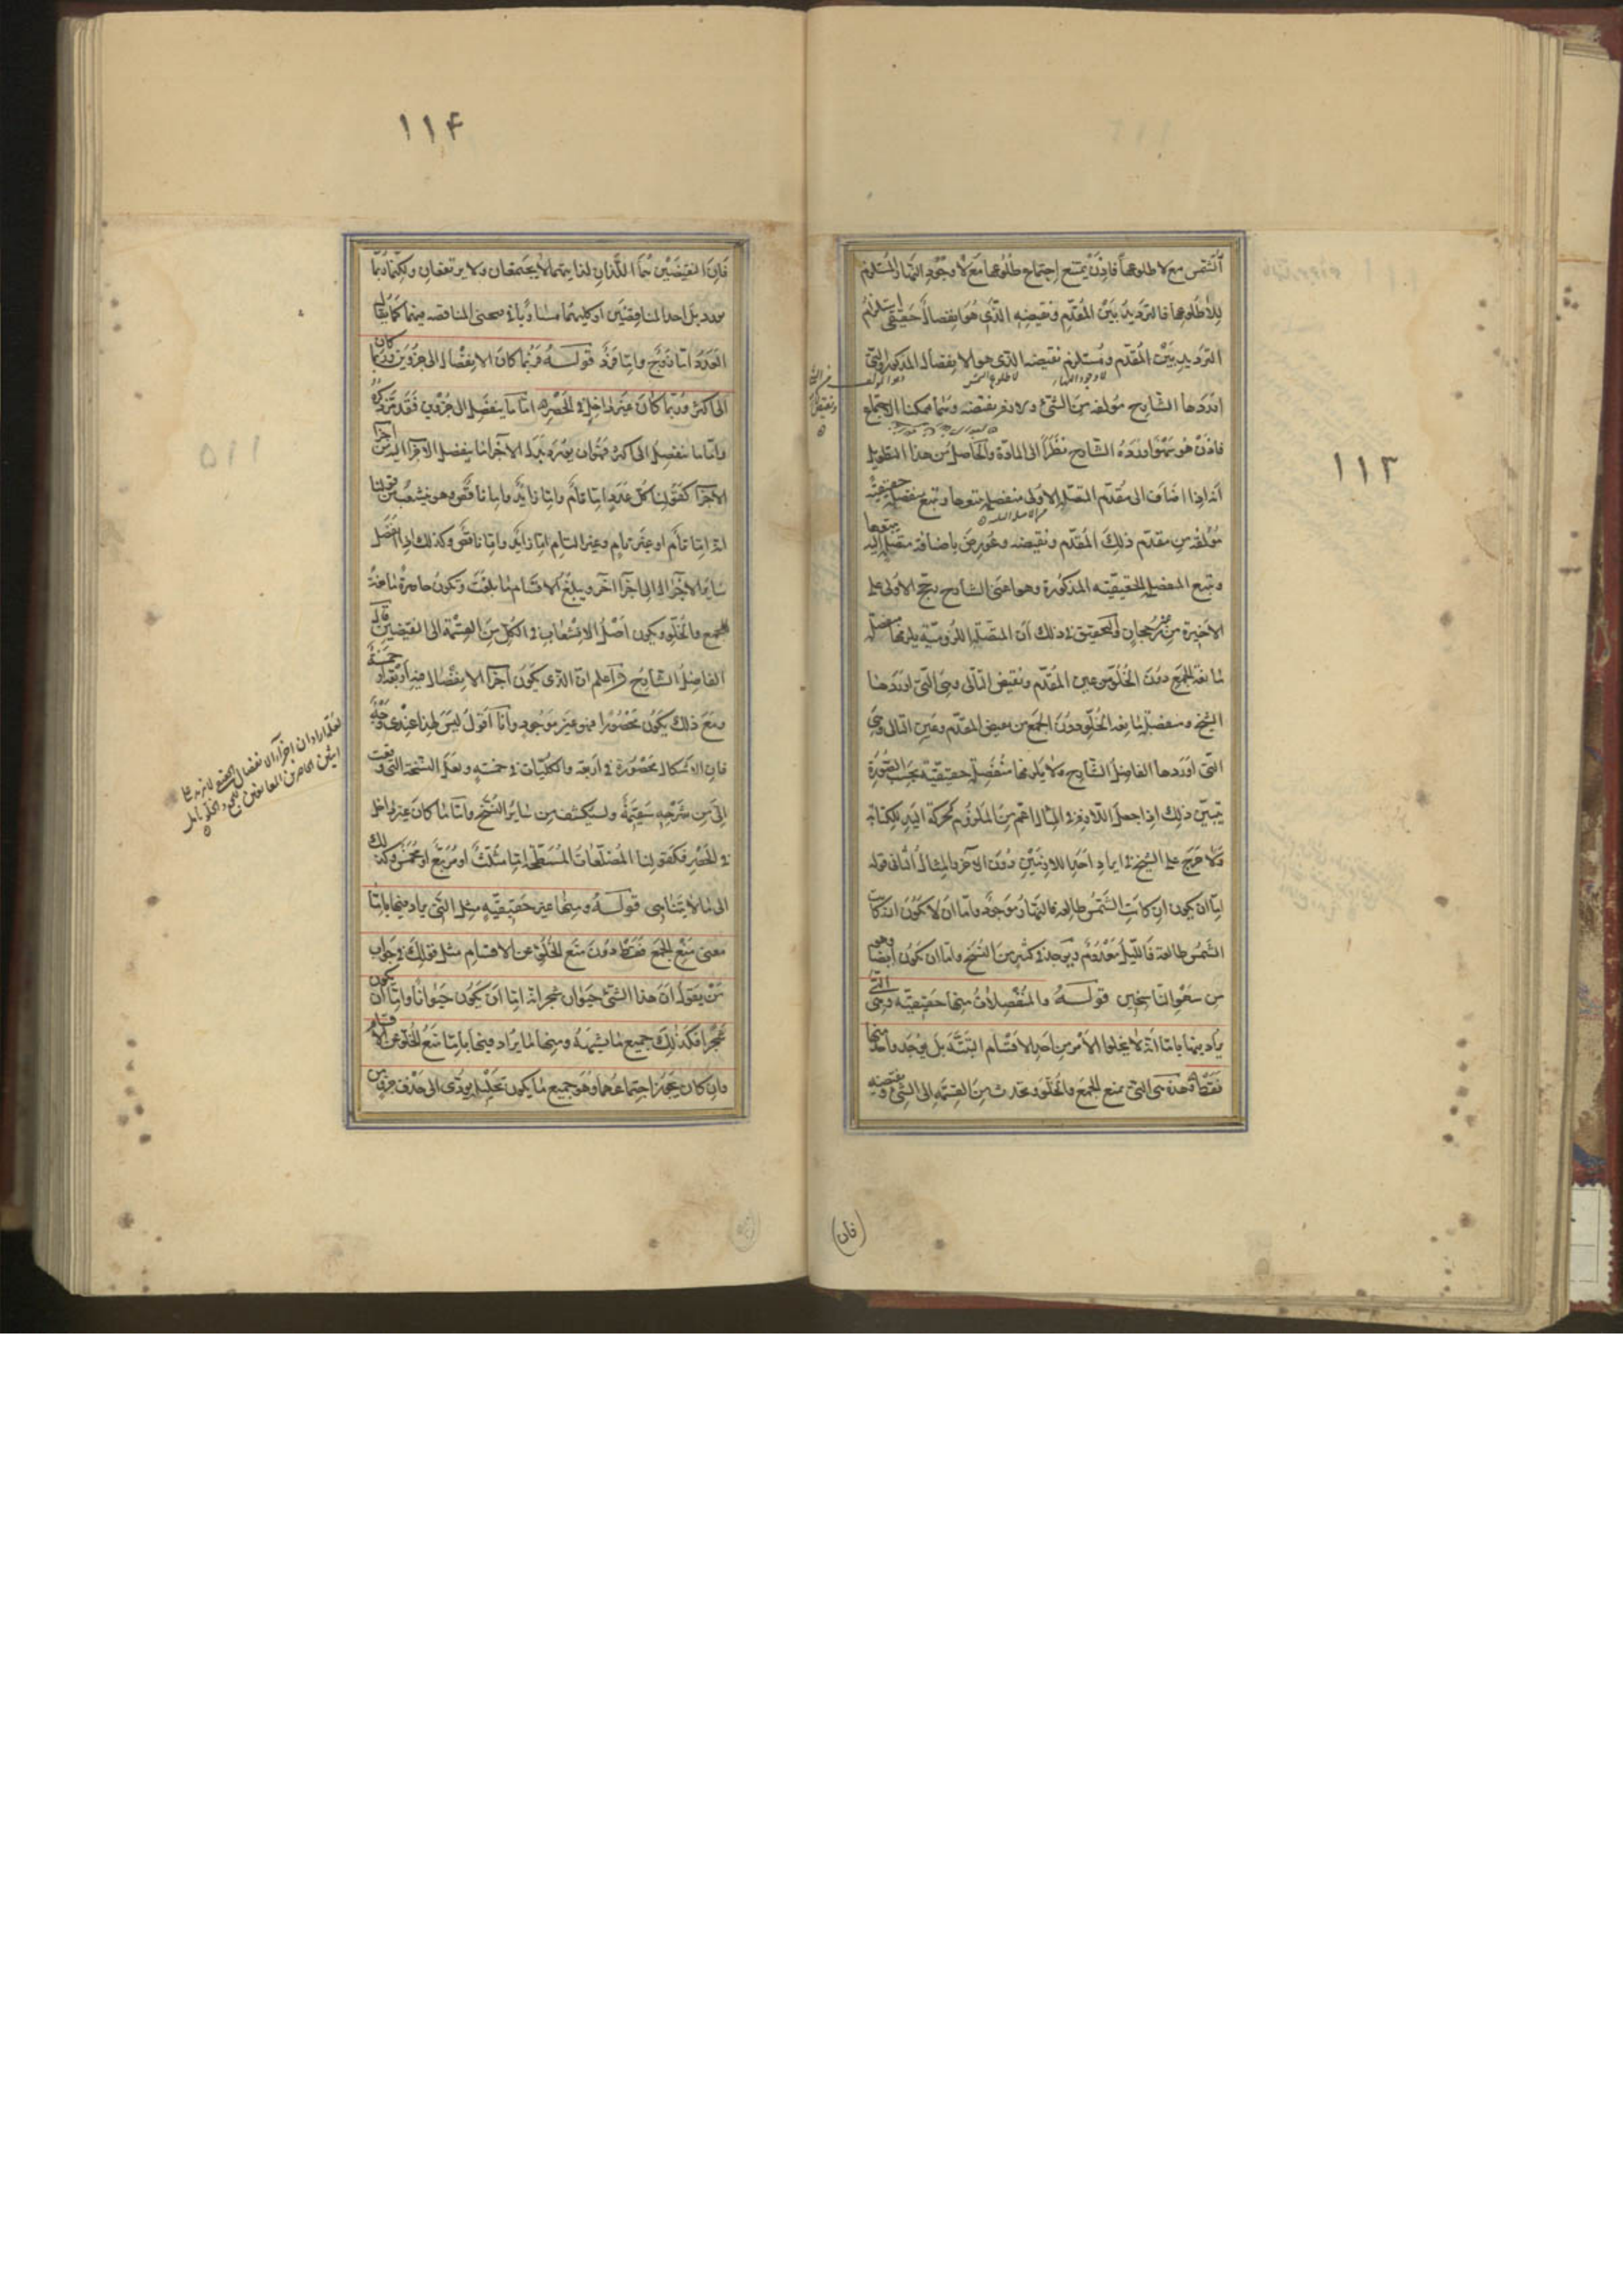 ١١٣
الشمس مع لا طلوعها فاذن يمتنع اجتماع طلوعها مع لا وجود النهار المستلزم
للاطلوعها فالترديد بين المقدم ونقيضه الذى هو انفصال حقيقى استلزم
الترديد بين المقدم ومستلزم نقيضه الذى هو الانفصال المذكور والتى
اوردها الشارح مؤلفة من الشئ ولازم نقيضه وربما يمكنا الاجتماع
فاذن هو سهو اورده الشارح نظرا الى المادة والحاصل من هذا التطويل
انه اذا اضاف الى مقدم المتصلة الاولى منفصلة يتبعها وتتبع منفصلة حقيقية
مؤلفة من مقدم ذلك المقدم ونقيضه وعورض باضافة متصلة اليه يتبعها
وتتبع المنفصلة الحقيقية المذكورة وهو اعنى الشارح رجح الاولى على
الاخيرة من غير رجحان والتحقيق فى ذلك ان المتصلة اللزومية يلزمها منفصلة
مانعة الجمع دون الخلو من عين المقدم ونقيض التالى وهى التى اوردها
الشيخ ومنفصلة مانعة الخلو دون الجمع من نقيض المقدم وعين التالى وهى
التى اوردها الفاضل الشارح ولا يلزمها منفصلة حقيقية بحسب الصورة
يتبين ذلك اذا جعل اللازم فى المثال اعم من الملزوم كحركة اليد للكتابة
ولا حرج على الشيخ فى ايراد احد اللازمين دون الآخر والمثال الثانى قوله
اما ان يكون ان كانت الشمس طالعة فالنهار موجود واما ان لا يكون ان كانت
الشمس طالعة فالليل معدوم ويوجد فى كثير من النسخ واما ان يكون ايضا وهو
من سهو الناسخين قوله والمنفصلات منها حقيقية وهى التى
يراد فيها باما انه لا يخلوا الامر من احد الاقسام البتة بل يوجد واحد منها
فقط فهذه هى التى يمنع الجمع والخلو وتحدث من القسمة الى الشئ ونقيضه
فان
١١۴
فان النقيضين هما اللذان لذاتيهما لا يجتمعان ولا يرتفعان ولكنهما ربما
يورد بدل احد المتناقضين او كليهما مساويا فى معنى المناقضة منهما كما يقال
العدد اما زوج واما فرد قوله فربما كان الانفصال الى جزوين وربما كان
الى اكثر وربما كان غير داخل فى الحصر اما ما ينفصل الى جزوين فقد مر ذكره
واما ما ينفصل الى اكثر فهو ان يورد بدل الاجزاء ما ينفصل الاجزا اليه من اجزا
الاجزا كقولنا كل عدد اما تام واما زايد واما ناقص وهو يتشعب من قولنا
انه اما تام او غير تام وغير التام اما زايد واما ناقص وكذلك اذا انفصل
سائر الاجزاء الى اجزا اخر ويبلغ الاقسام ما بلغت وتكون حاصرة مانعة
للجمع والخلو ويكون اصل الانشعاب فى الكل من القسمة الى النقيضين قال
الفاضل الشارح واعلم ان الذى يكون اجزا الانفصال فيه اربعة او خمسة
ومع ذلك يكون محصورا فهو غير موجود وانا اقول ليس لهذا عندى وجه
فان الاشكال محصورة فى اربعة والكليات فى خمسة ولعل النسخة التى وقعت
الى من شرحه سقيمة وليكشف من سائر النسخ واما ما كان غير داخل
فى الحصر فكقولنا المضلعات المسطحة اما مثلث او مربع او مخمس وكذلك
الى ما لا يتناهى قوله ومنها غير حقيقية مثل التى يراد فيها باما
معنى منع الجمع فقط دون منع الخلو عن الاقسام مثل قولك فى جواب
من يقول ان هذا الشئ حيوان شجر انه اما ان يكون حيوانا واما ان يكون
شجرا فكذلك جميع ما يشبهه ومنها ما يراد فيها باما منع الخلو عن الاقسام
وان كان يجوز اجتماعهما وهو جميع ما يكون تحليله يؤدى الى حذف جزء من
لعله اراد ان اجزاء الانفصال